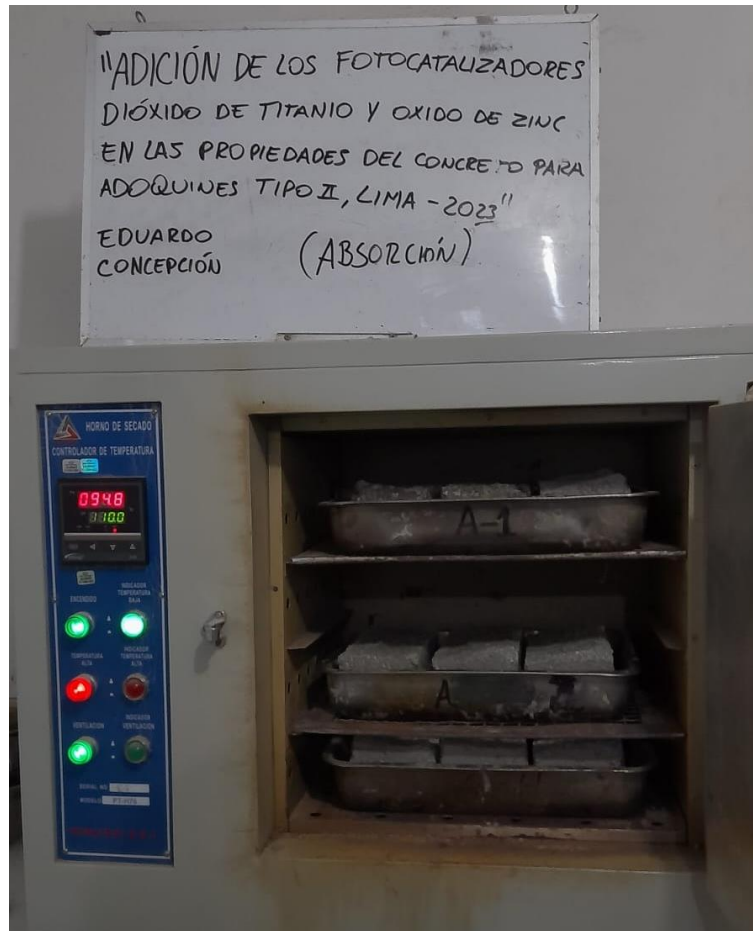 "ADICIÓN DE LOS FOTOCATALIZADORES
DIÓXIDO DE TITANIO Y OXIDO DE ZINC
EN LAS PROPIEDADES DEL CONCRETO PARA
ADOQUINES TIPO II, LIMA - 2023"
EDUARDO
CONCEPCIÓN
(ABSORCIÓN)
HORNO DE SECADO
CONTROLADOR DE TEMPERATURA
094.8
110.0
ENCENDIDO
INDICADOR
TEMPERATURA
BAJA
TEMPERATURA
ALTA
INDICADOR
TEMPERATURA
ALTA
VENTILACION
INDICADOR
VENTILACIÓN
SERIAL NO
MODELO
A-1
A